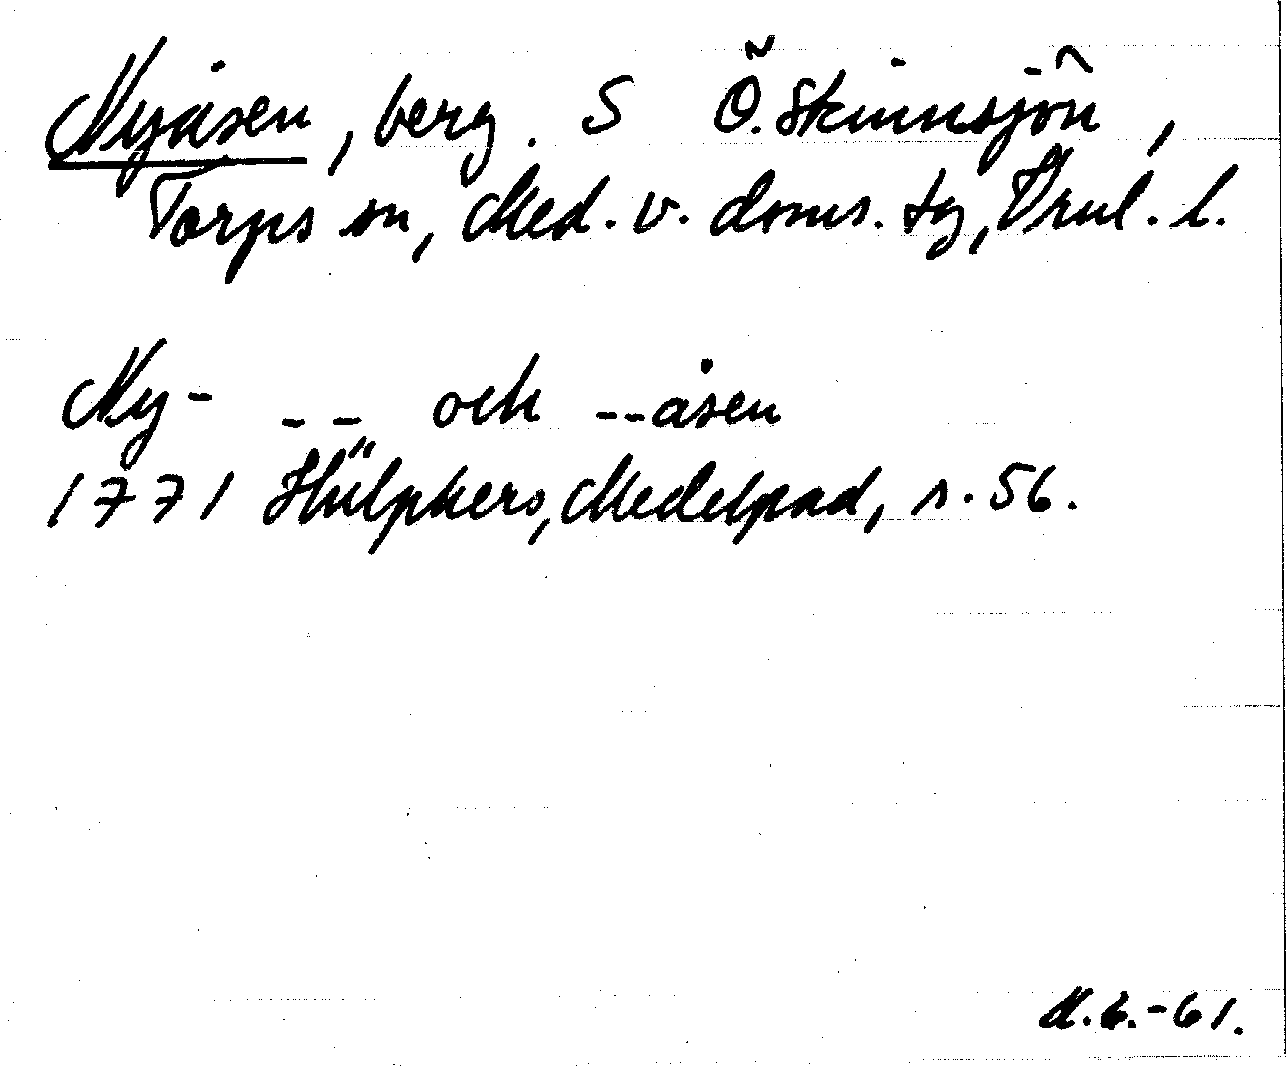 Nyåsen, berg. S Ö. Skinnsjön,
Torps sn, Med. v. doms. tg, Vnl. l.
Ny- -- och --åsen
1771 Hülphers, Medelpad, s. 56.
M.B.-61.